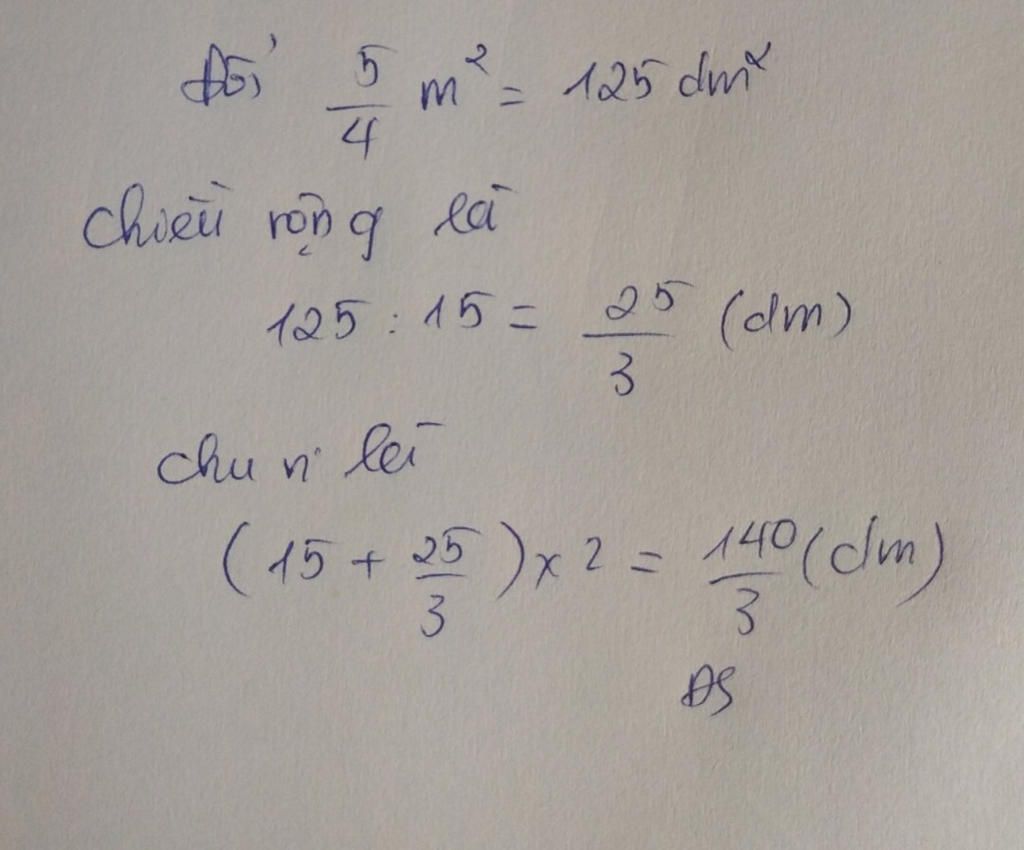 Đổi 5/4 m² = 125 dm²
Chiều rộng là
125 : 15 = 25/3 (dm)
Chu vi là
(15 + 25/3) x 2 = 140/3 (dm)
ĐS